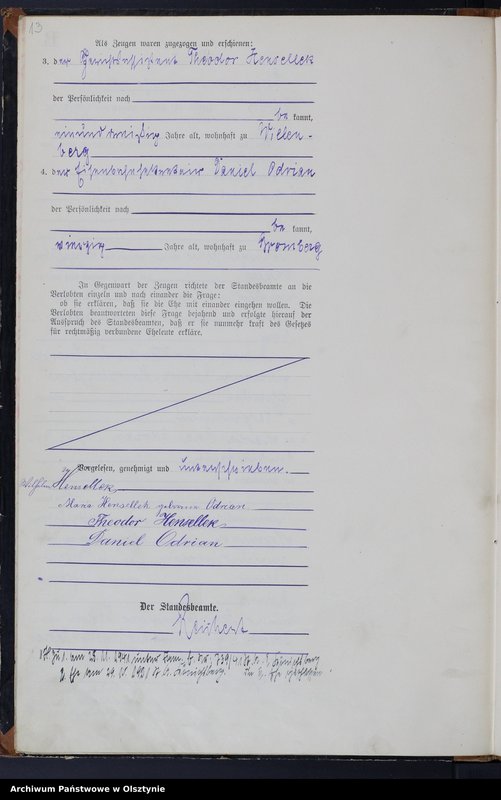 13
Als Zeugen waren zugezogen und erschienen:
3. der Gerichtsassistent Theodor Hensellek
der Persönlichkeit nach
be kannt,
einunddreißig Jahre alt, wohnhaft zu Willen-
berg
4. der Eisenbahnsekretair Daniel Odrian
der Persönlichkeit nach
be kannt,
vierzig Jahre alt, wohnhaft zu Bromberg
In Gegenwart der Zeugen richtete der Standesbeamte an die
Verlobten einzeln und nach einander die Frage:
ob sie erklären, daß sie die Ehe mit einander eingehen wollen. Die
Verlobten beantworteten diese Frage bejahend und erfolgte hierauf der
Ausspruch des Standesbeamten, daß er sie nunmehr kraft des Gesetzes
für rechtmäßig verbundene Eheleute erkläre.
Vorgelesen, genehmigt und unterschrieben.
Wilhelm Hensellek
Hensellek geborene Odrian
Theodor Hensellek
Daniel Odrian
Der Standesbeamte.
zu 1. am
2. Ehe am
Archiwum Państwowe w Olsztynie